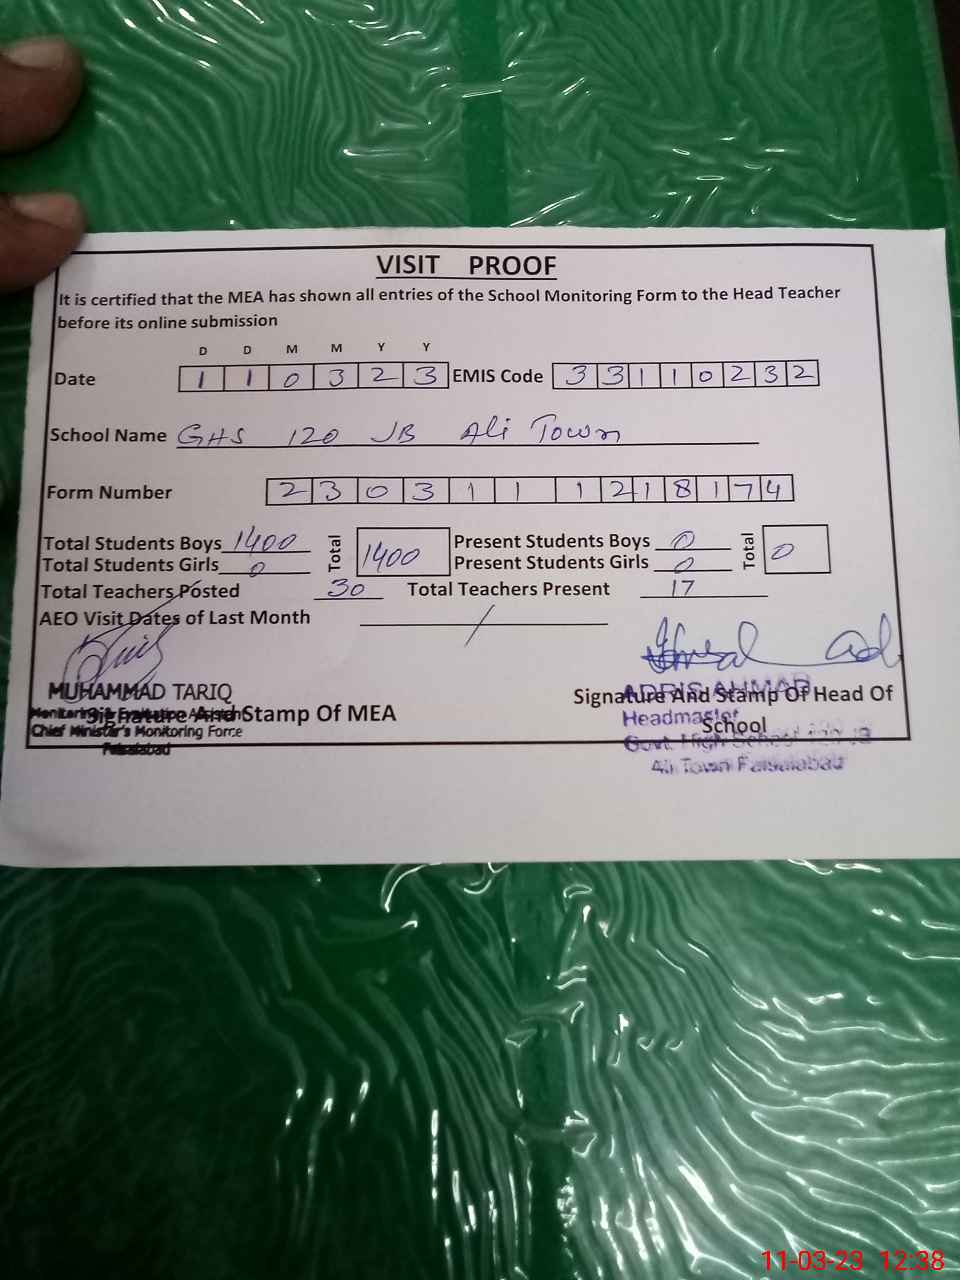 VISIT PROOF
It is certified that the MEA has shown all entries of the School Monitoring Form to the Head Teacher
before its online submission
D D M M Y Y
Date 1 1 0 3 2 3 EMIS Code 3 3 1 1 0 2 3 2
School Name GHS 120 JB Ali Town
Form Number 2 3 0 3 1 1 1 2 1 8 1 7 4
Total Students Boys 1400 Total 1400 Present Students Boys 0 Total 0
Total Students Girls 0 Present Students Girls 0
Total Teachers Posted 30 Total Teachers Present 17
AEO Visit Dates of Last Month /
MUHAMMAD TARIQ
Monitoring & Evaluation Assistant
Signature And Stamp Of MEA
Chief Minister's Monitoring Force
Faisalabad
Signature And Stamp Of Head Of
School
AHMAR
Headmaster
Govt. High School 120 JB
Ali Town Faisalabad
11-03-23 12:38